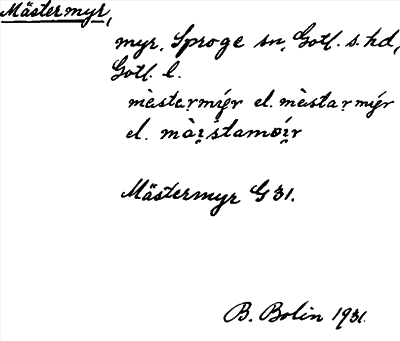 Mästermyr,
myr, Sproge sn, Gotl. s. hd,
Gotl. l.
mèstạrmýr el. mèstạrmýr
el. mài̯stamói̯r
Mästermyr G 31.
B. Bolin 1931.